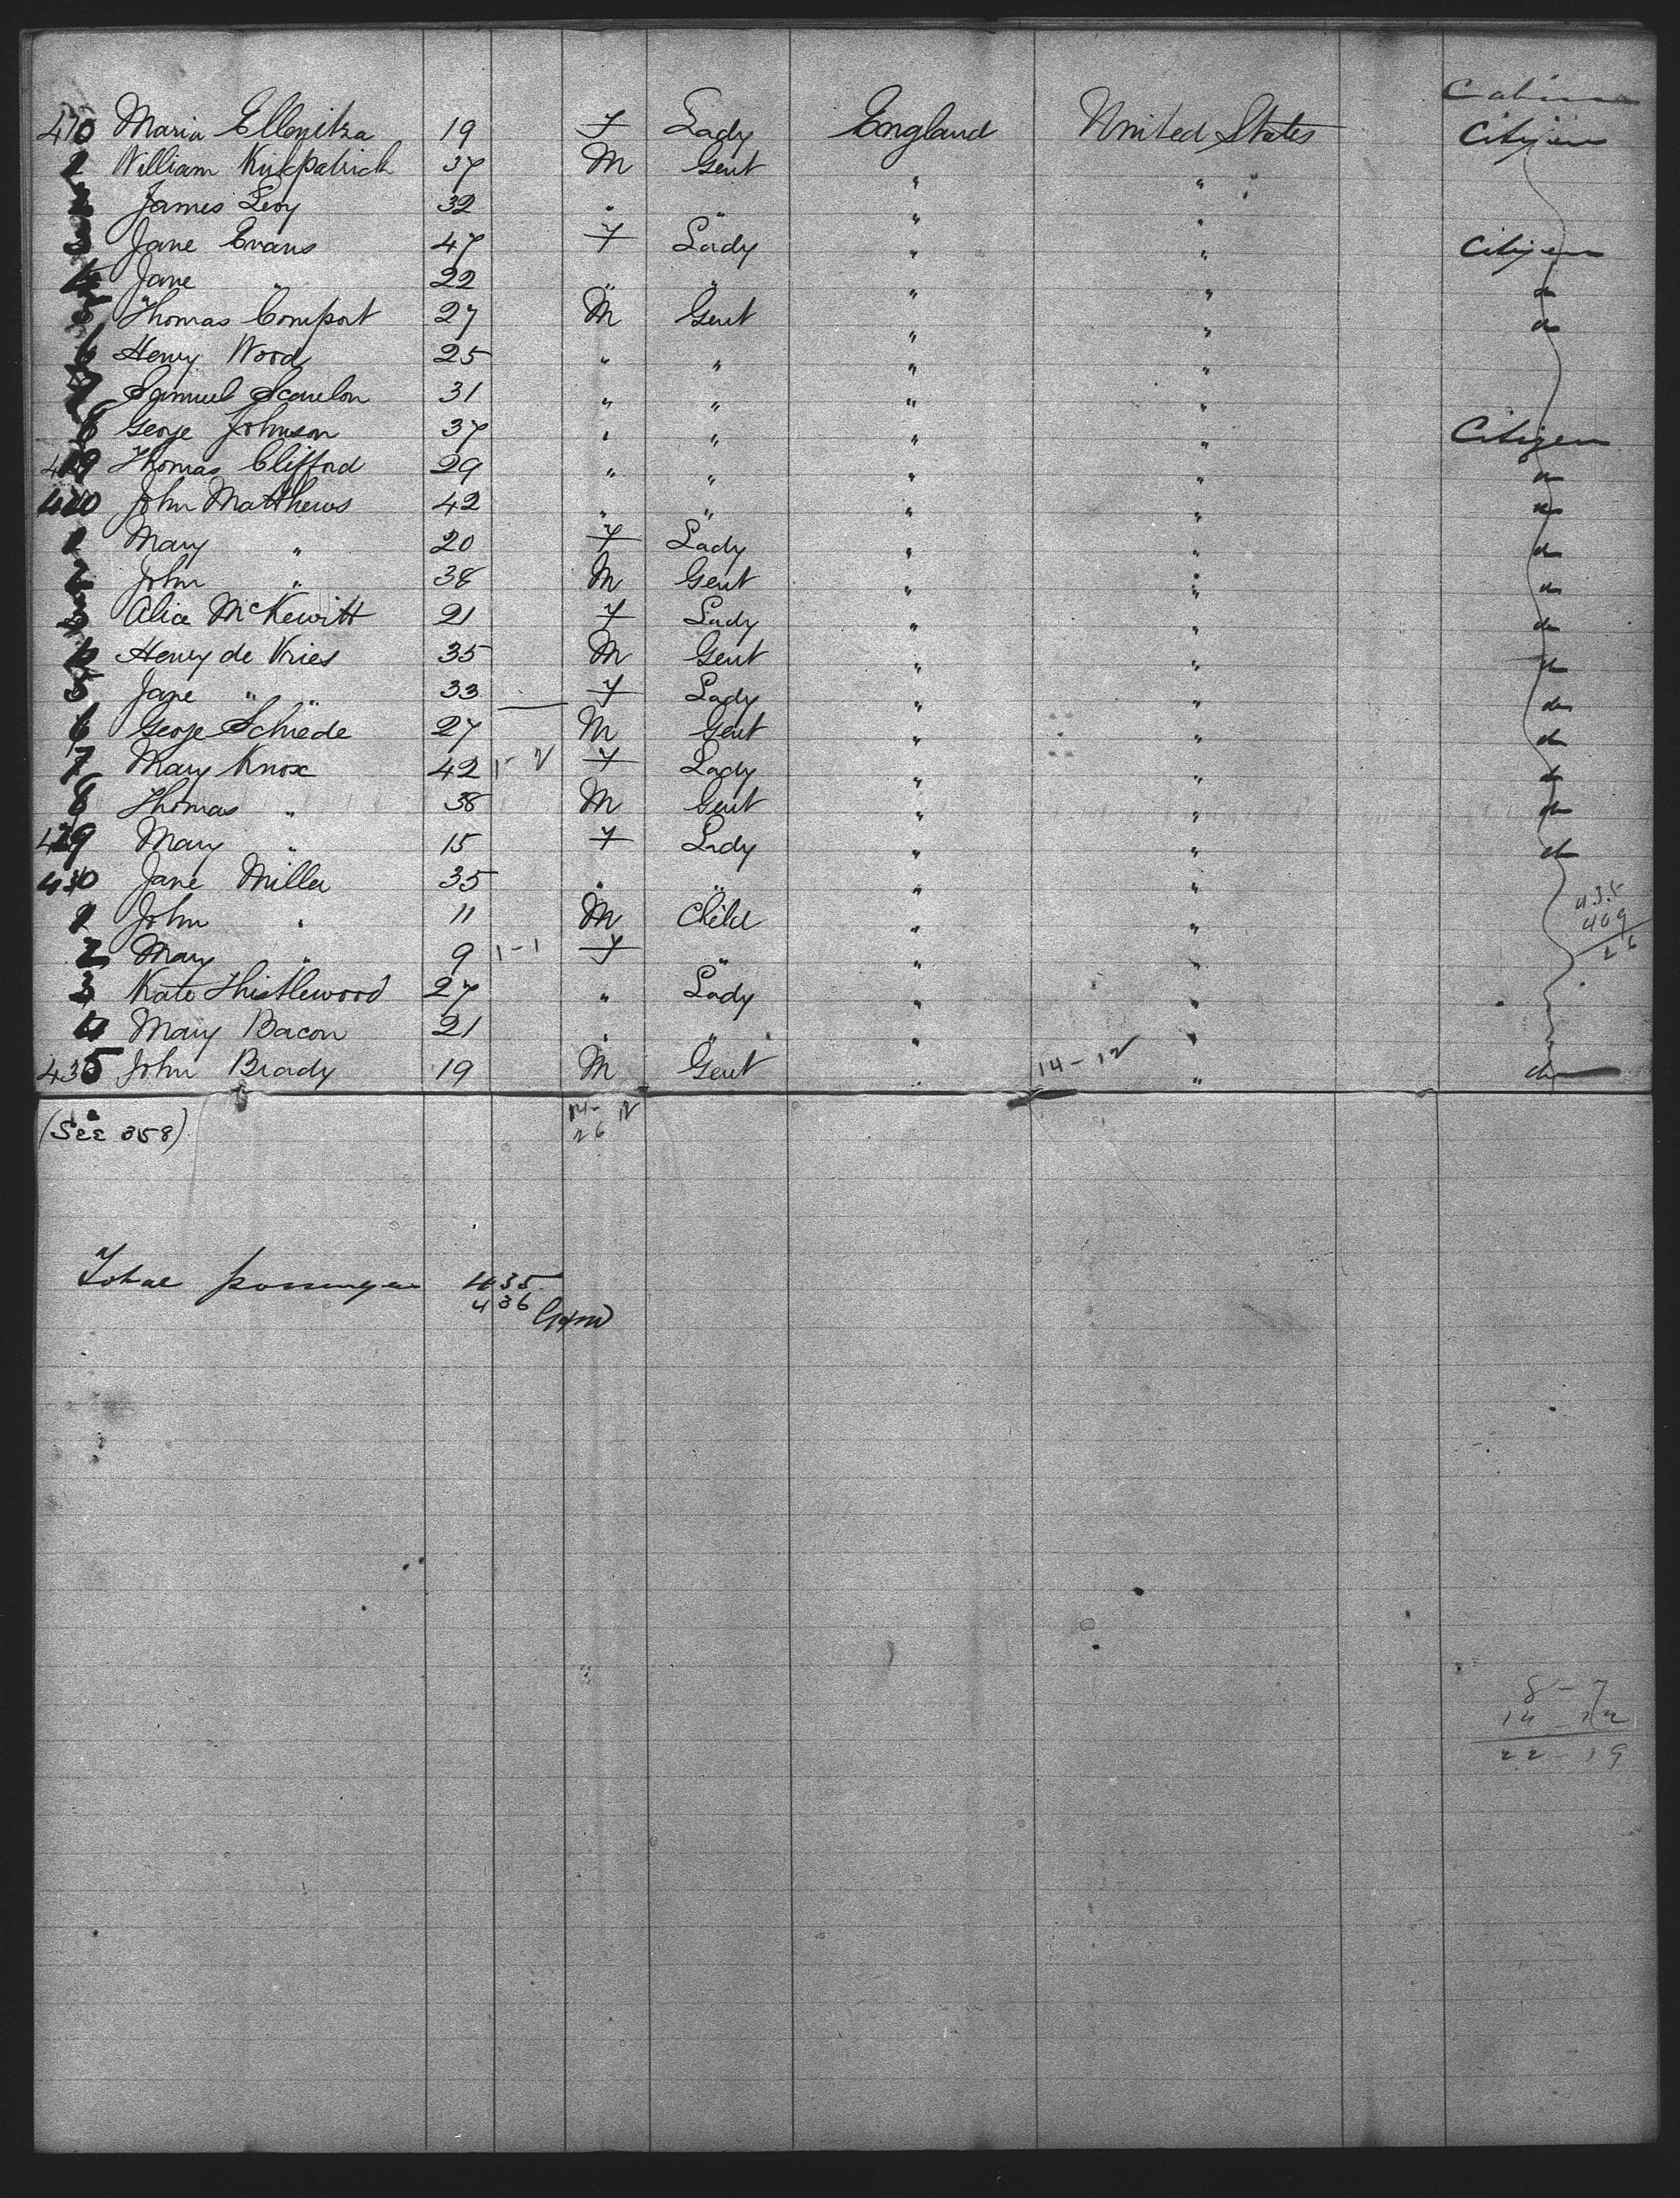 Cabin
410 Maria Ellonitza 19 F Lady England United States Citizen
1 William Kirkpatrick 37 M Gent " "
2 James Levy 32 " " " "
3 Jane Evans 47 F Lady " " Citizen
4 Jane " 22 " " " " do
5 Thomas Comport 27 M Gent " " do
6 Henry Wood 25 " " " "
7 Samuel Scanlon 31 " " " "
8 George Johnson 37 " " " " Citizen
419 Thomas Clifford 29 " " " " do
420 John Matthews 42 " " " " do
1 Mary " 20 F Lady " " do
2 John " 38 M Gent " " do
3 Alice McKewitt 21 F Lady " " do
4 Henry de Vries 35 M Gent " " do
5 Jane " " 33 F Lady " " do
6 George Schiede 27 M Gent " " do
7 Mary Knox 42 1-2 F Lady " " do
8 Thomas " 38 M Gent " " do
429 Mary " 15 F Lady " " do
430 Jane Miller 35 " " " "
1 John " 11 M Child " "
2 Mary " 9 1-1 F " " "
3 Kate Thistlewood 27 " Lady " "
4 Mary Bacon 21 " " " "
435 John Brady 19 M Gent " 14-12 " do
435
409
26
(See 358)
14-12
26
Total passengers 435
436
8-7
14-12
22-19